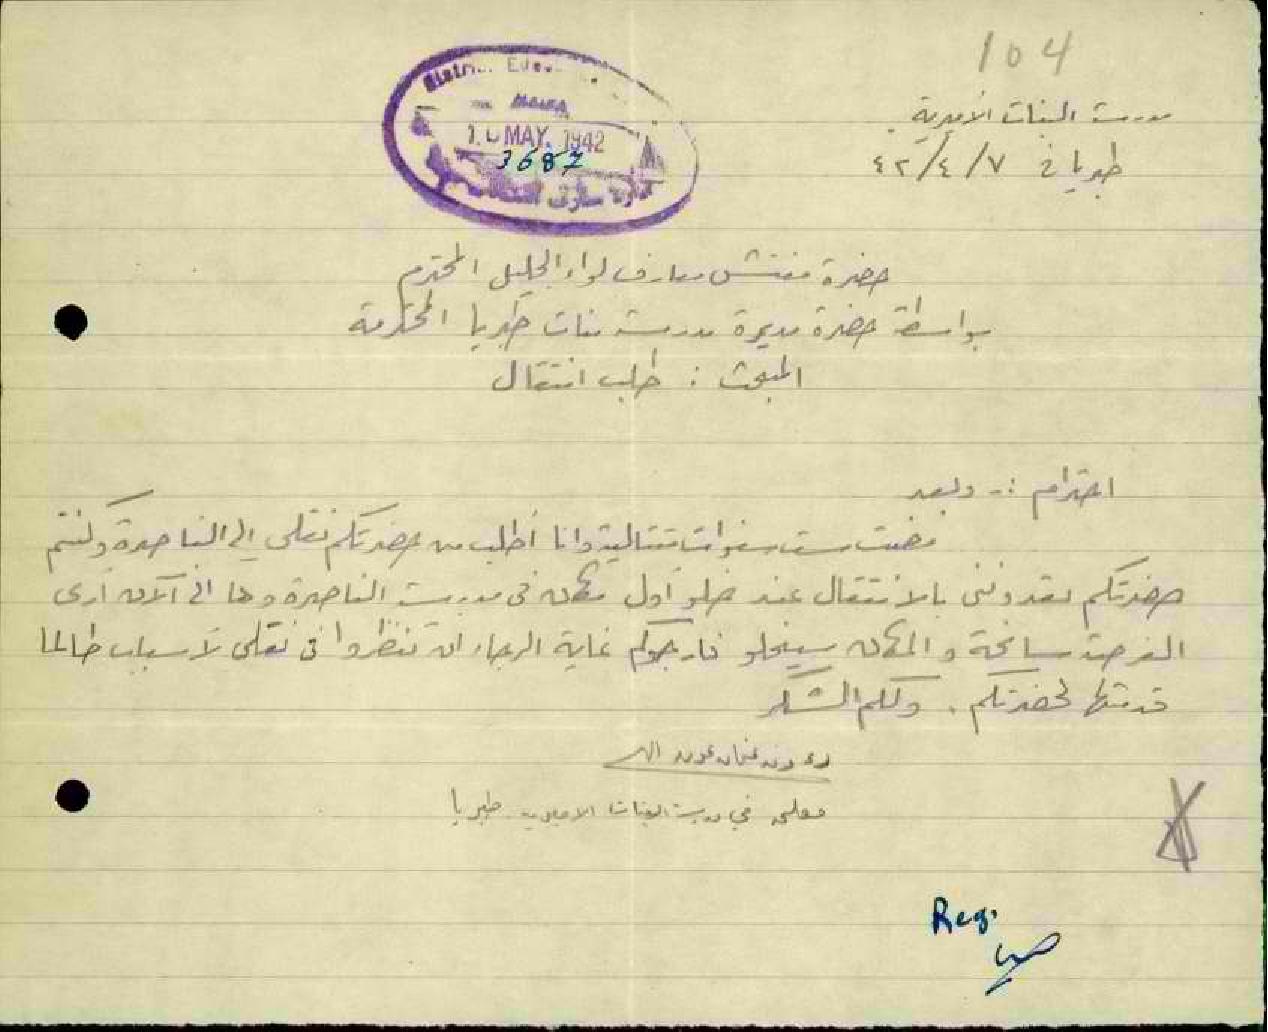 104
مدرسة البنات الأميرية
طبريا في ٧/٤/٤٢
MAY. 1942
3687
حضرة مفتش معارف لواء الجليل المحترم
بواسطة حضرة مديرة مدرسة بنات طبريا المحترمة
المبحث : طلب انتقال
احترام :- وبعد
مضت ست سنوات متتالية وانا أطلب من حضرتكم نقلي الى الناصرة وكنتم
حضرتكم تعدونني بالانتقال عند خلو أول مكان في مدرسة الناصرة وها انى آلان أرى
الفرصة سانحة و المكان سيخلو فارجوكم غاية الرجاء ان تنظروا في نقلي لأسباب طالما
قدمتها لحضرتكم . ولكم الشكر
معلمة في مدرسة البنات الاميرية طبريا
Reg.